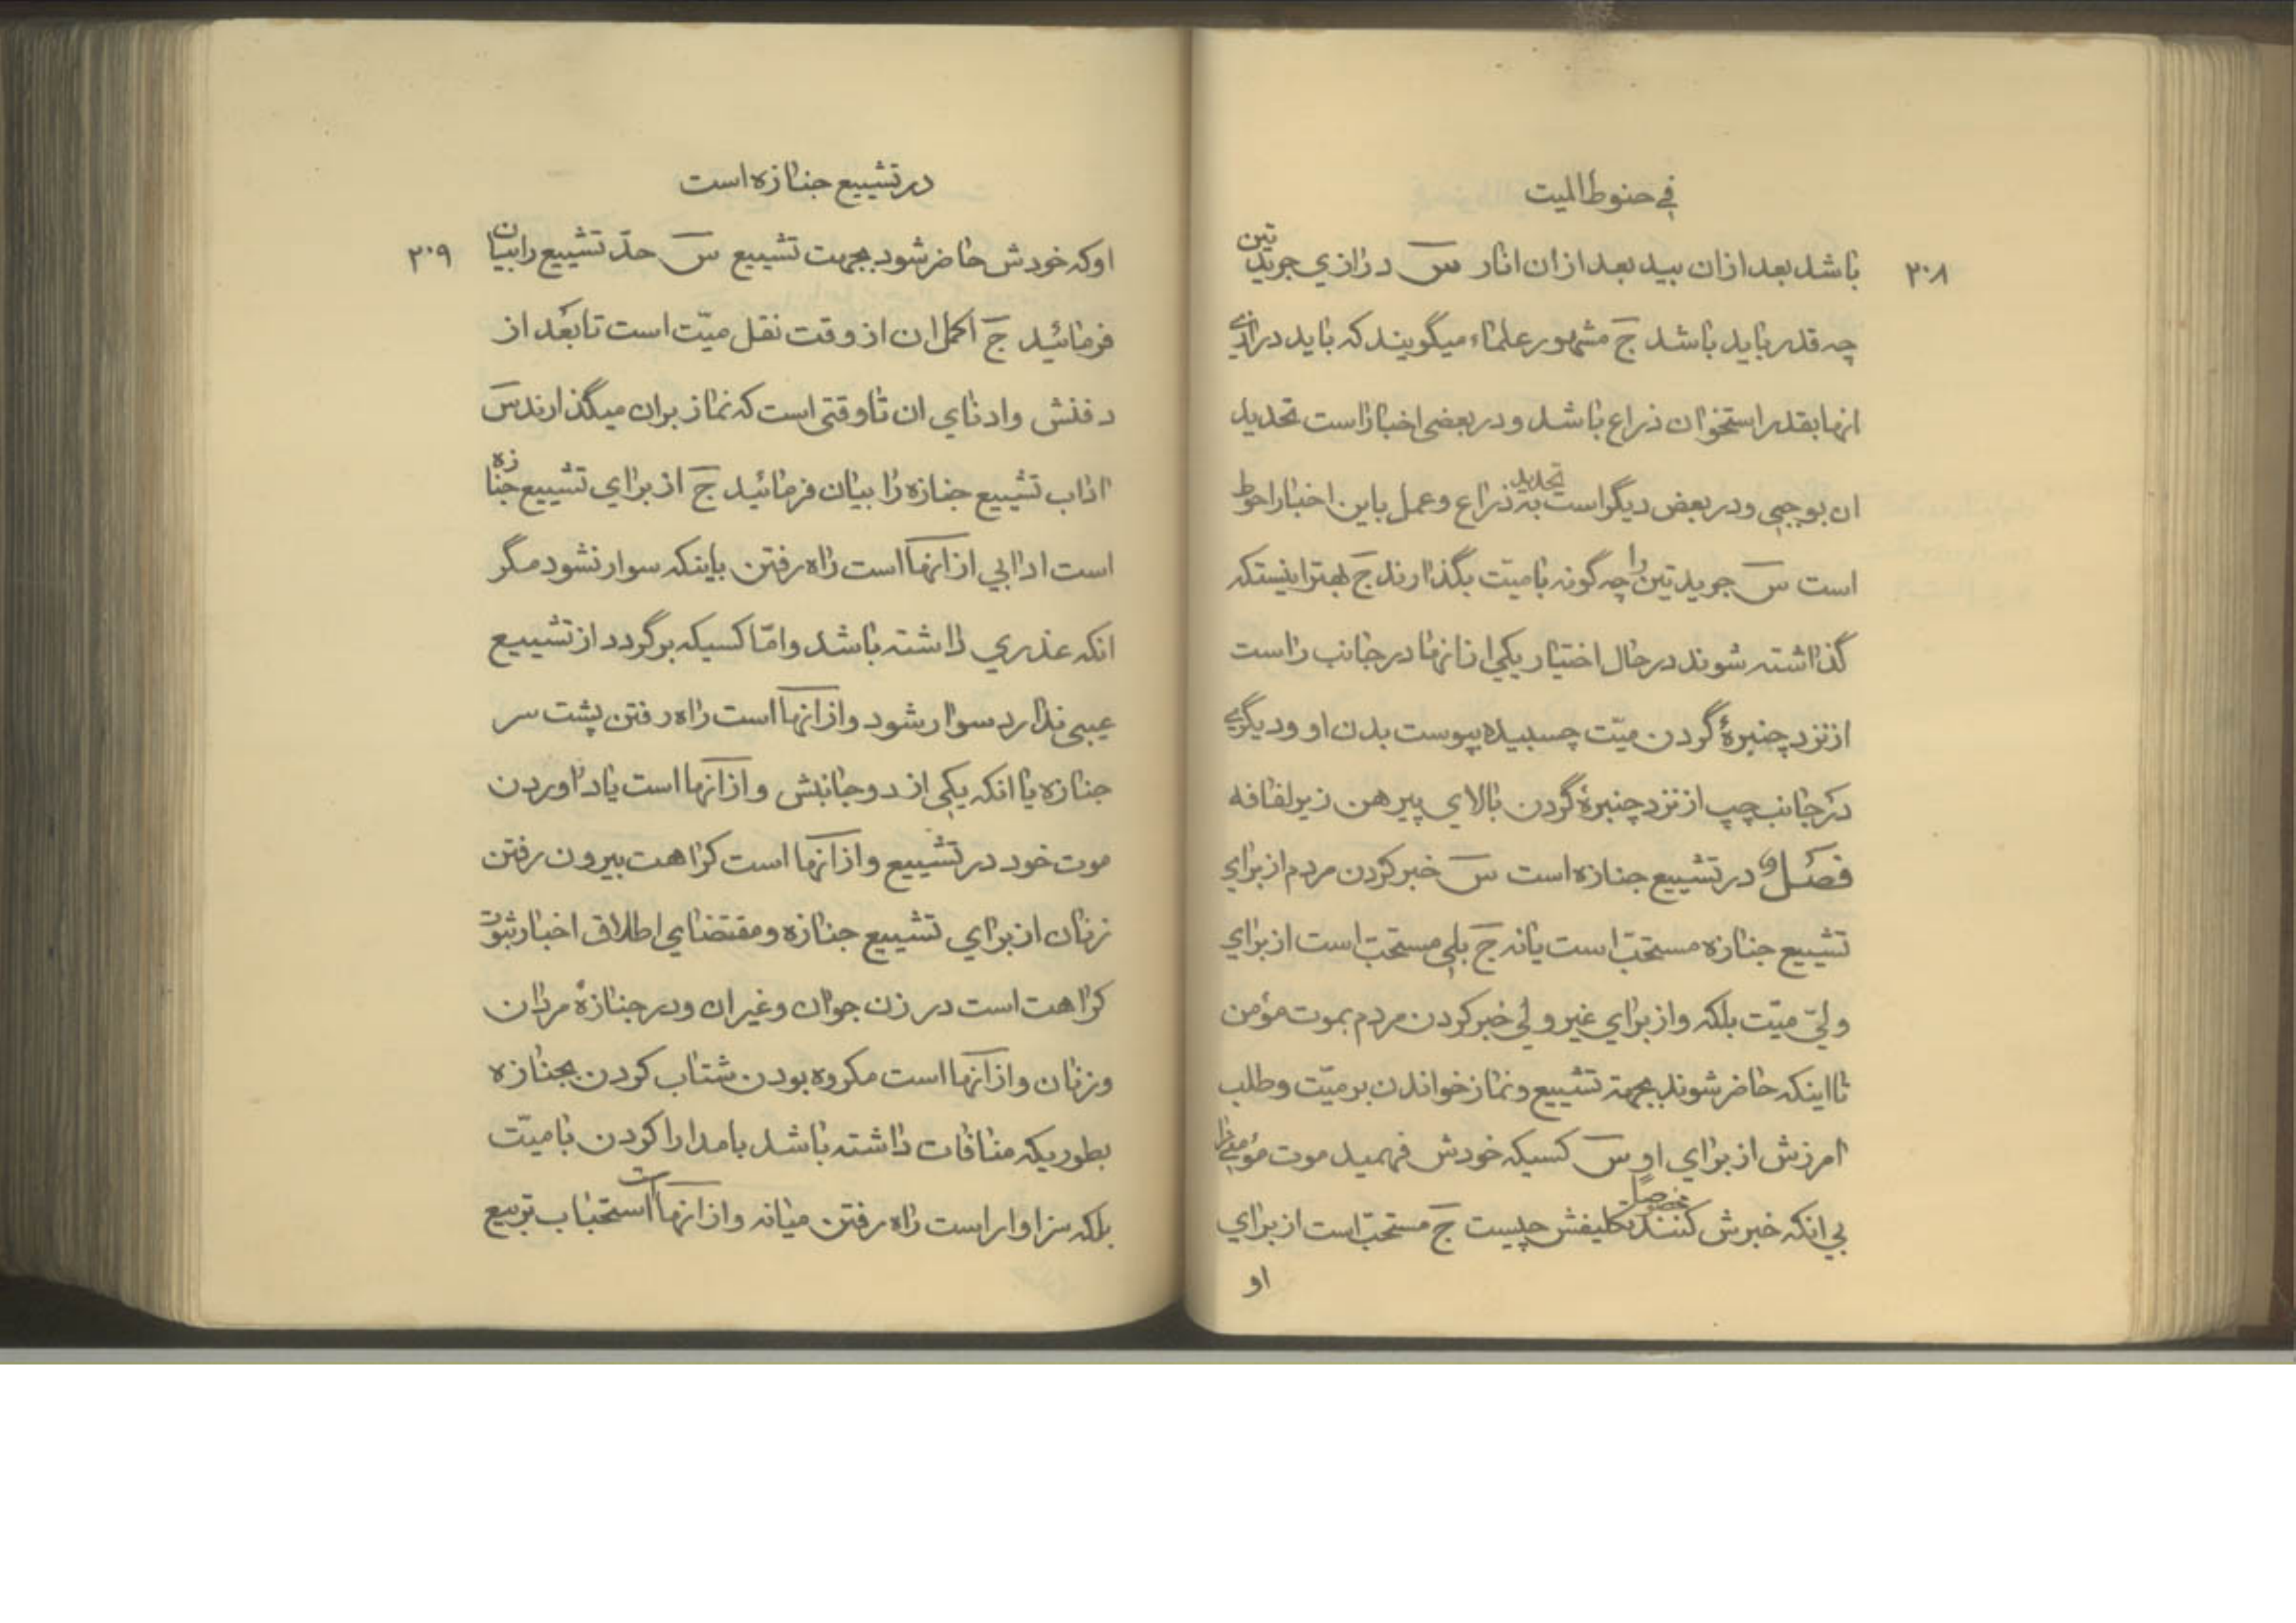 في حنوط الميت
۲۰۸
باشد بعد ازان بيد بعد ازان انار س درازي جريدتين
چه قدر بايد باشد ج مشهور علماء ميگويند كه بايد درازي
انها بقدر استخوان ذراع باشد و در بعضي اخبار است تحديد
ان بوجبي و در بعض ديگر است تحديد به ذراع و عمل باين اخبار احوط
است س جريدتين را چه گونه با ميّت بگذارند ج بهتر اينستكه
گذاشته شوند در حال اختيار يكي از انها در جانب راست
از نزد چنبرهٔ گردن ميّت چسبيده بپوست بدن او و ديگري
در جانب چپ از نزد چنبرهٔ گردن بالاي پيرهن زير لفافه
فصل در تشييع جنازه است س خبر كردن مردم از براي
تشييع جنازه مستحبّ است يا نه ج بلي مستحبّ است از براي
وليّ ميّت بلكه و از براي غير ولي خبر كردن مردم بموت مؤمن
تا اينكه حاضر شوند بجهة تشييع و نماز خواندن بر ميّت و طلب
امرزش از براي او س كسيكه خودش فهميد موت مؤمني را
بي انكه خبرش كنند تكليفش چيست ج مستحبّ است از براي
او
در تشييع جنازه است
۲۰۹
او كه خودش حاضر شود بجهت تشييع س حدّ تشييع را بيان
فرمائيد ج اكمل ان از وقت نقل ميّت است تا بعد از
دفنش و ادناي ان تا وقتي است كه نماز بران ميگذارند س
اداب تشييع جنازه را بيان فرمائيد ج از براي تشييع جنازه
است ادابي از انها است راه رفتن باينكه سوار نشود مگر
انكه عذري داشته باشد و امّا كسيكه برگردد از تشييع
عيبي ندارد سوار شود و از انها است راه رفتن پشت سر
جنازه يا انكه يكي از دو جانبش و از انها است ياد اوردن
موت خود در تشييع و از انها است كراهت بيرون رفتن
زنان از براي تشييع جنازه و مقتضاي اطلاق اخبار ثبوت
كراهت است در زن جوان و غير ان و در جنازهٔ مردان
و زنان و از انها است مكروه بودن شتاب كردن بجنازه
بطوريكه منافات داشته باشد با مدارا كردن با ميّت
بلكه سزاوار است راه رفتن ميانه و از انها است استحباب تربيع